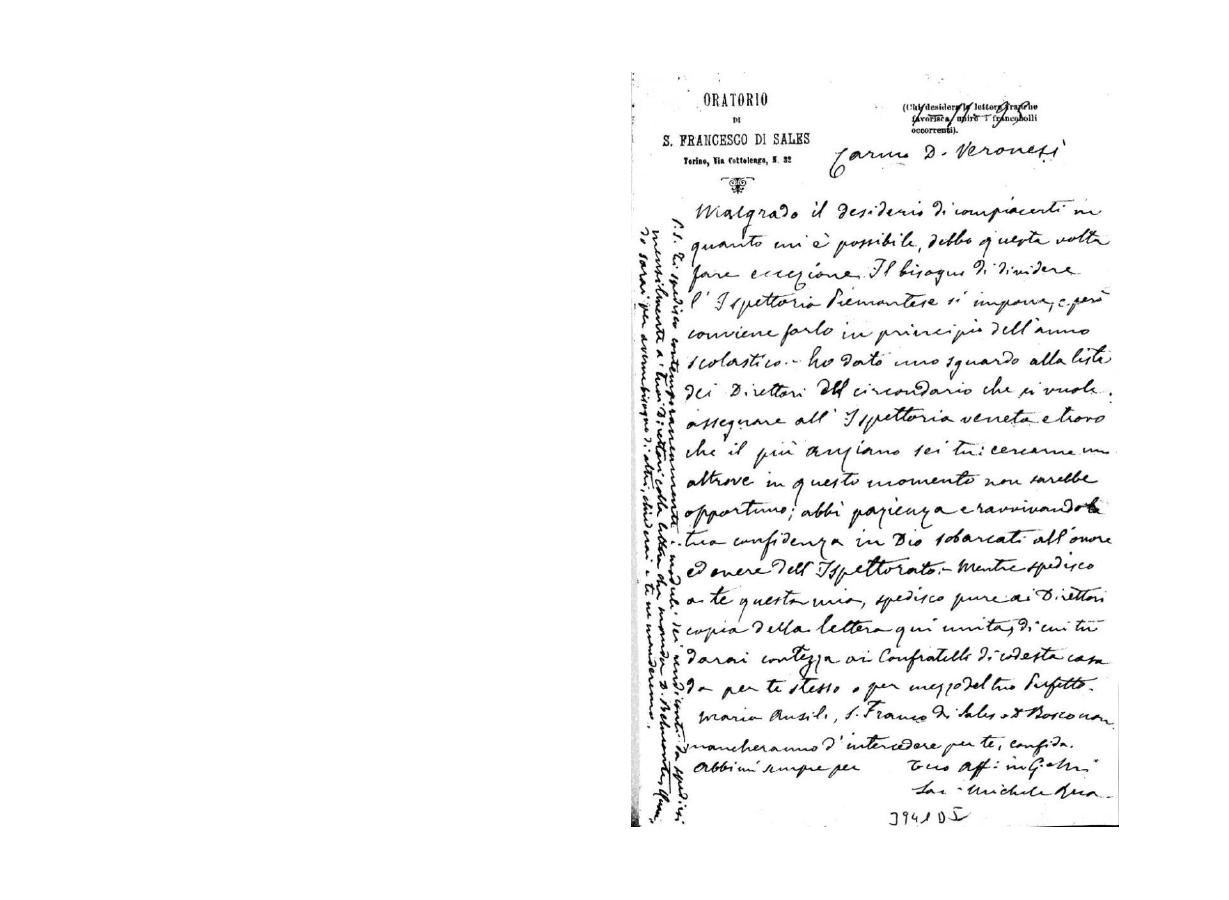 ORATORIO
DI
S. FRANCESCO DI SALES
Torino, Via Cottolengo, N. 32
(Chi desidera le lettere franche
favorisca unire i francobolli
occorrenti).
Carmo D. Veronesi
Malgrado il desiderio di compiacerti in
quanto mi è possibile, debbo questa volta
fare eccezione. Il bisogno di dividere
l'Ispettoria Piemontese si impone, e però
conviene farlo in principio dell'anno
scolastico. - ho dato uno sguardo alla lista
dei Direttori del circondario che si vuole
assegnare all'Ispettoria veneta e trovo
che il più anziano sei tu: cercarne un
altrove in questo momento non sarebbe
opportuno; abbi pazienza e ravvivando la
tua confidenza in Dio sobarcati all'onore
ed onere dell'Ispettorato. - Mentre spedisco
a te questa mia, spedisco pure ai Direttori
copia della lettera qui unita, di cui tu
darai contezza ai Confratelli di codesta casa
da per te stesso o per mezzo del tuo Prefetto.
Maria Ausil., S. Franco di Sales e D Bosco non
mancheranno d'intercedere per te, confida.
Abbimi sempre per
tuo aff: in G. e M.
Sac. Michele Rua
3941 D
P.S. Ti spedisco contemporaneamente i moduli dei rendiconti da spedirsi
mensilmente a' tuoi Direttori colla lettera che manda D. Belmonte, quan
do sarai per averne bisogno di altri, chiederai e te ne manderemo.